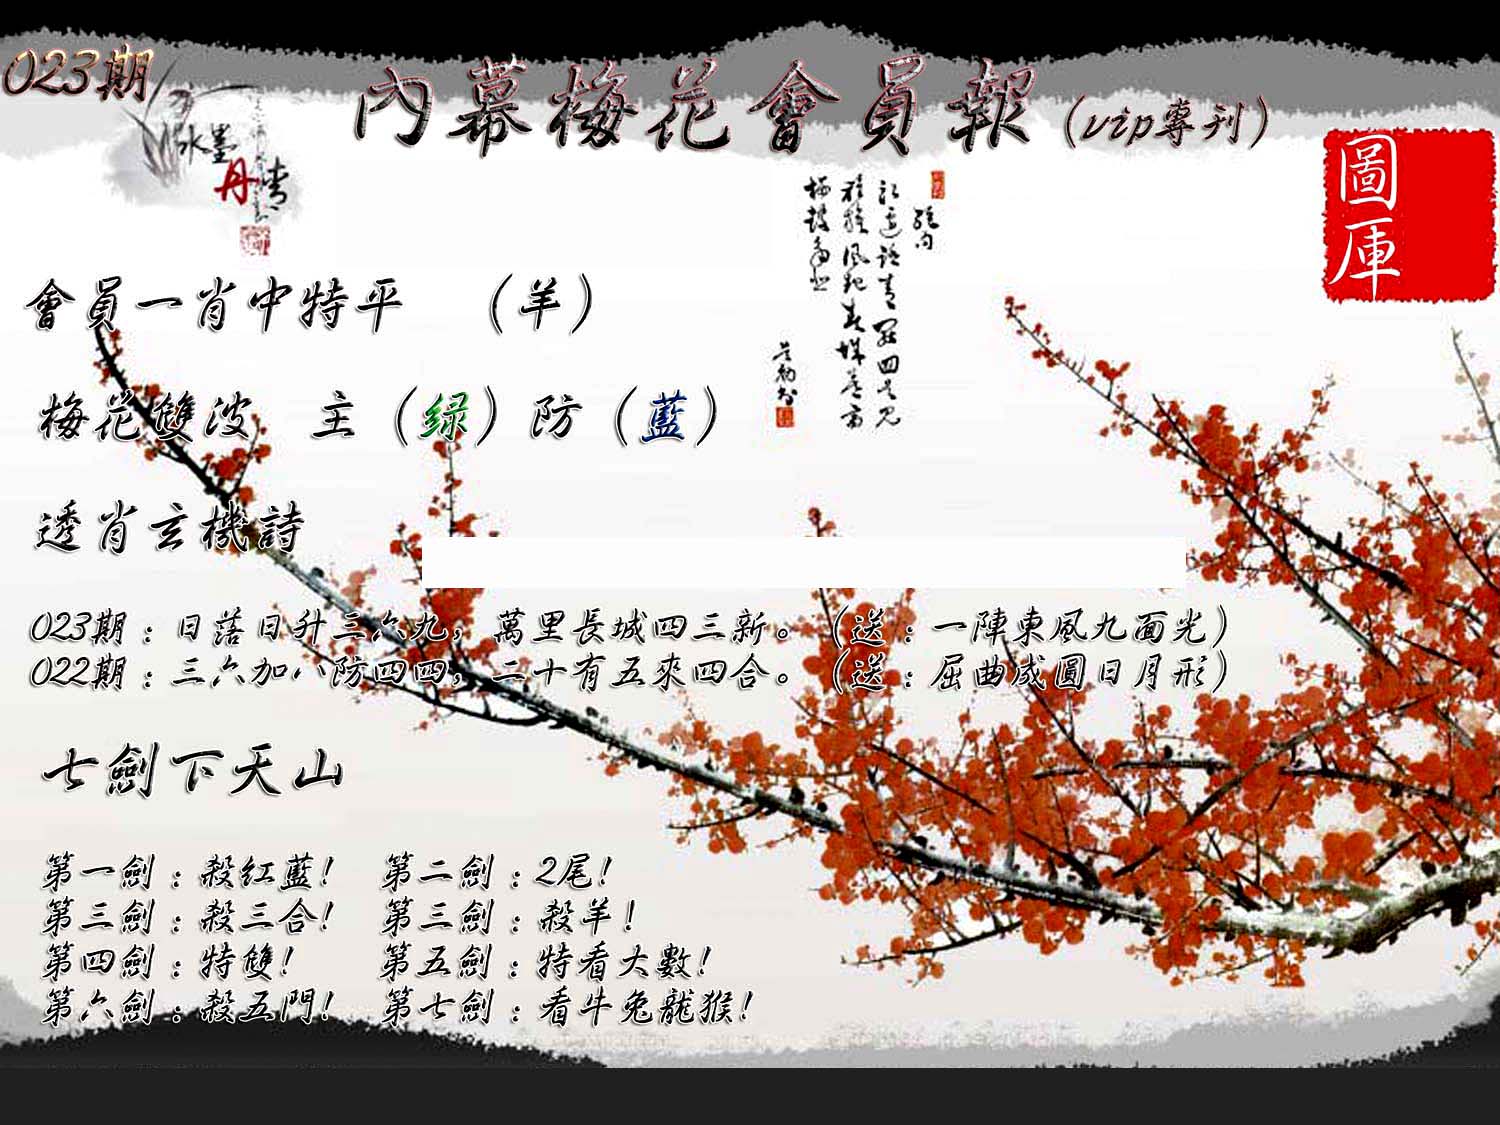 023期
內幕梅花會員報（vip專刊）
水墨
丹青
圖庫
會員一肖中特平 （羊）
梅花雙波 主（绿）防（藍）
透肖玄機詩
023期：日落日升三六九，萬里長城四三新。（送：一陣東風九面光）
022期：三六加八防四四，二十有五來四合。（送：屈曲成圓日月形）
七劍下天山
第一劍：殺红藍！ 第二劍：2尾！
第三劍：殺三合！ 第三劍：殺羊！
第四劍：特雙！ 第五劍：特看大數！
第六劍：殺五門！ 第七劍：看牛兔龍猴！